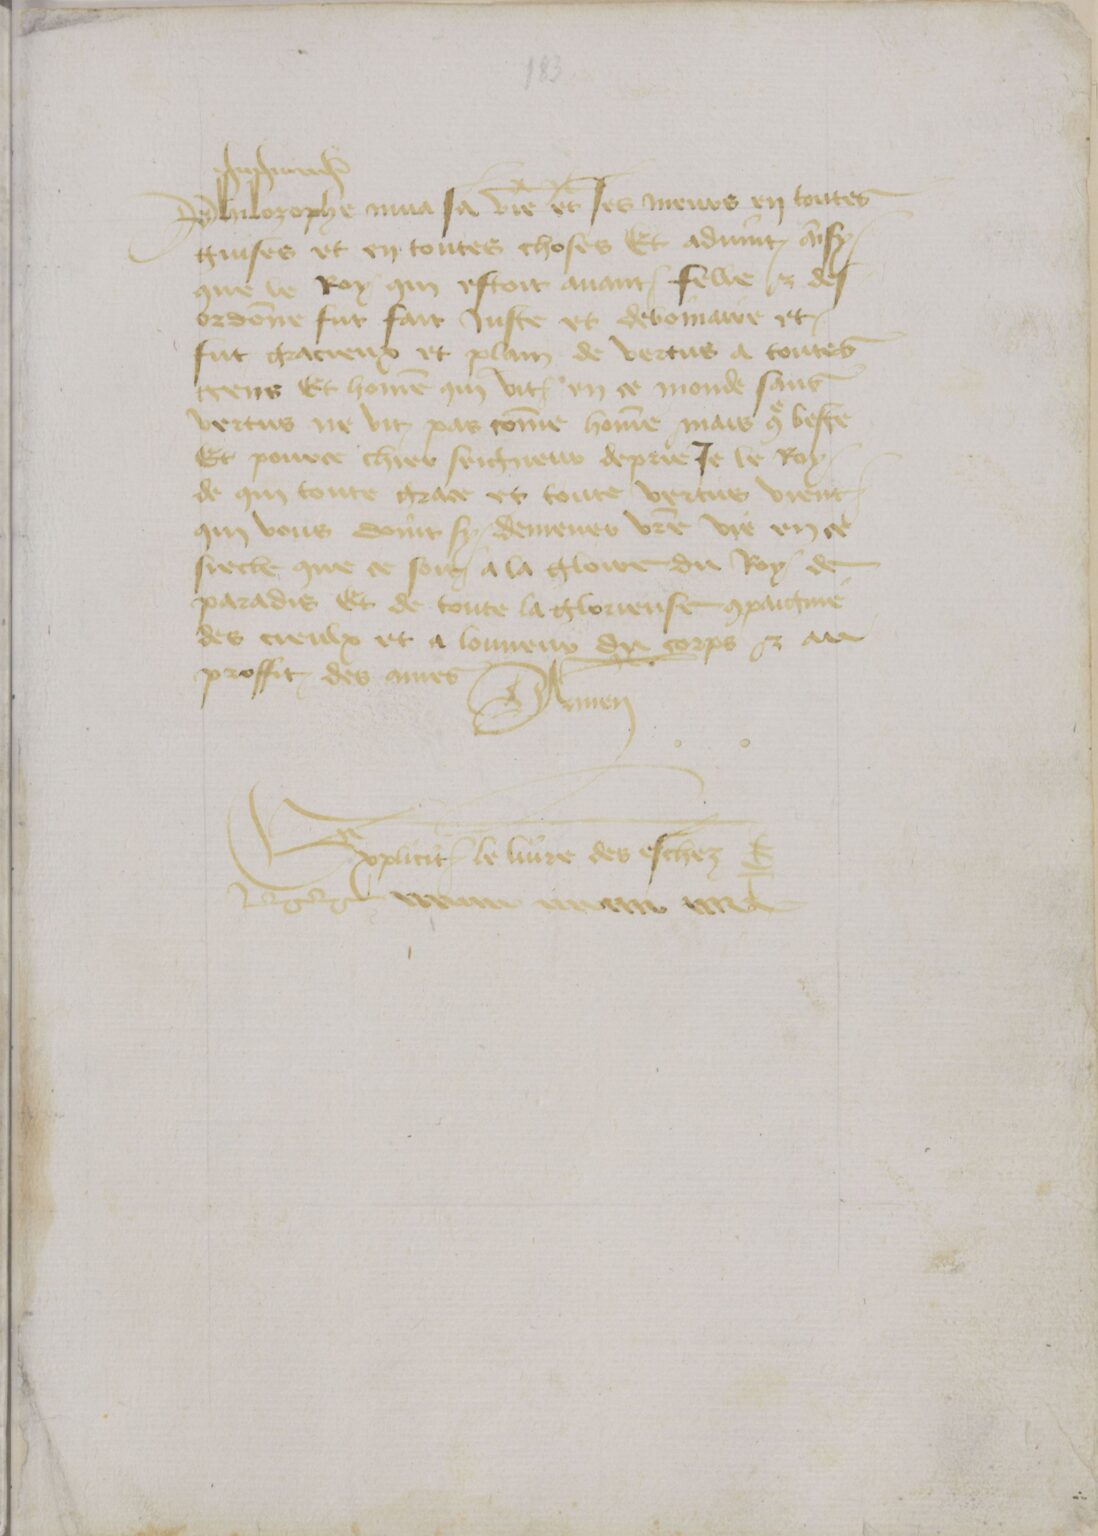 183
Philozophe mua sa vie et ses meurs en toutes
guises et en toutes choses Et advint ainsy
que le Roy qui estoit avant felle & des
ordōne fut fait Juste et debonnaire et
fut gracieux et plain de vertus a toutes
gens Et home qui vit en ce monde sans
vertus ne vit pas cōme hōme mais q̄ beste
Et pource chier seigneur deprie Je le Roy
de qui toute grace et toute vertus vient
qui vous doint sy demener vr̄e vie en ce
siecle que ce soit a la gloire du Roy de
paradis Et de toute la glorieuse ꝯpaignie
des cieulx et a lonneur du corps & au
proffit des ames Amen
Explicit le livre des eschez